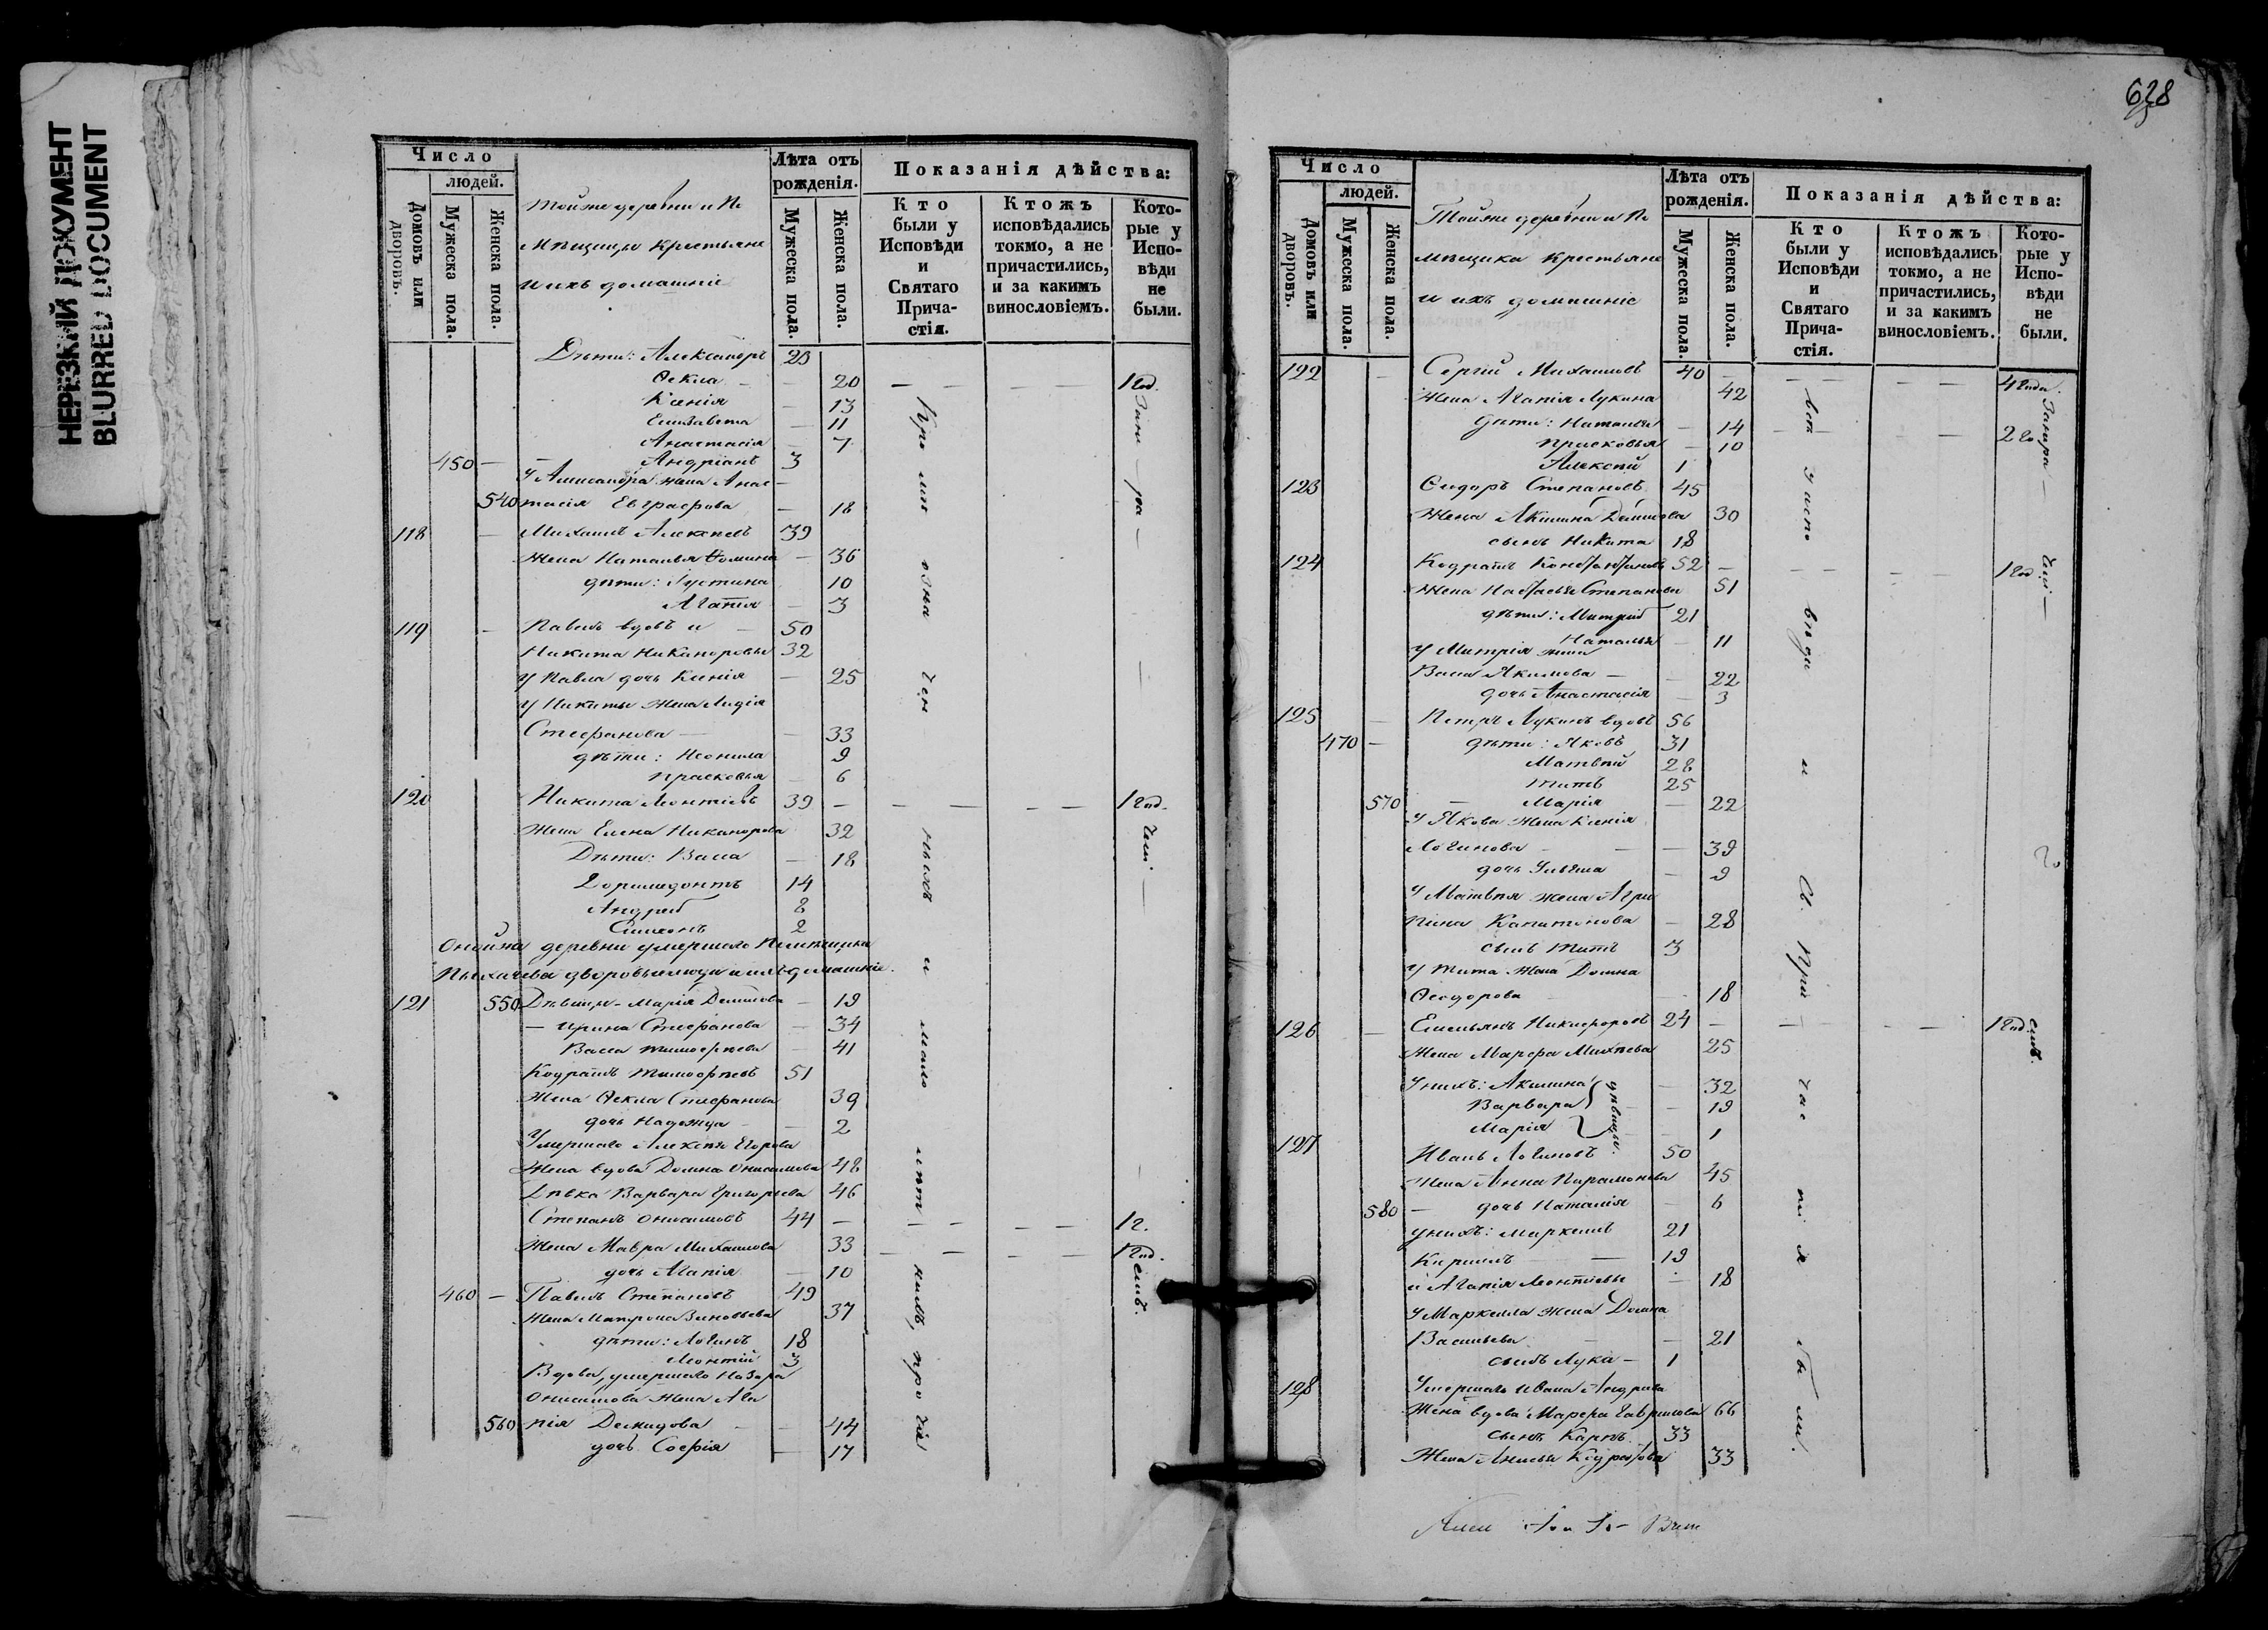 НЕРЕЗКИЙ ДОКУМЕНТ
BLURRED DOCUMENT
Число
людей.
Домовъ или дворовъ.
Мужеска пола.
Женска пола.
Тойже деревни и По
мѣщицы Крестьяне
и ихъ домашніе
Лѣта отъ рожденія.
Мужеска пола.
Женска пола.
Показанія дѣйства:
Кто были у Исповѣди и Святаго Прича-стія.
Ктожъ исповѣдались токмо, а не причастились, и за какимъ винословіемъ.
Кото-рые у Испо-вѣди не были.
Дѣти: Александръ 23
Ѳекла — — 20 — — — — 1 год.
Ксенія — 13
Елизавета — 11
Анастасія — 7
450 — — Андріанъ 3
У Александра жена Анас —
540 тасія Евграфова — 18
118 — Михаилъ Алексѣевъ 39
Жена Наталья Ѳомина — 36
дѣти: Іустина 10
Агапія — 3
119 — Павелъ вдовъ и — 50
Никита Никаноровы 32
у Павла дочь Ксенія — 25
у Никиты жена Лидія
Стефанова — — 33
дѣти: Неонила 9
Прасковья — 6
120 Никита Леонтіевъ 39 — — — — — 1 год.
Жена Елена Никанорова 32
Дѣти: Васса — 18
Доримедонтъ 14
Андрей 8
Симеонъ 2
Онойже деревни умершаго Помѣщика
Пыхачева дворовые люди и ихъ домашніе.
121 550 Дѣвицы — Марія Данилова — 19
— Ирина Стефанова — 34
Васса Тимофѣева — 41
Кодратъ Тимофѣевъ 51
Жена Ѳекла Стефанова 39
дочь Надежда — — 2
Умершаго Алексѣя Егорова
Жена вдова Домна Онисимова 48
Дѣвка Варвара Григорьева 46
Степанъ Онисимовъ 44 — — — — — 1 г.
Жена Мавра Михаилова 33 — — — — 1 год.
дочь Агапія — 10
460 — Павелъ Степановъ 49
Жена Матрона Зиновьева 37
дѣти: Логинъ 18
Леонтій 3
Вдова, умершаго Назара
Онисимова жена Ага
560 пія Демидова — — 44
дочь Софія — 17
628
Число
людей.
Домовъ или дворовъ.
Мужеска пола.
Женска пола.
Тойже деревни и По
мѣщика Крестьяне
и ихъ домашніе
Лѣта отъ рожденія.
Мужеска пола.
Женска пола.
Показанія дѣйства:
Кто были у Исповѣди и Святаго Прича-стія.
Ктожъ исповѣдались токмо, а не причастились, и за какимъ винословіемъ.
Кото-рые у Испо-вѣди не были.
122 — Сергій Михаиловъ 40 — — — — — 4 года
Жена Агапія Лукина 42
дѣти: Наталья — 14 — — — 2 го
Прасковья — 10
Алексѣй 1
123 Сидоръ Степановъ 45
Жена Акилина Данилова 30
сынъ Никита 18
124 Кодратъ Константиновъ 52 — — — — — 1 год
Жена Настасья Степанова 51
дѣти: Митрій 21
Наталья — 11
у Митрія жена
Васса Якимова — — 22
дочь Анастасія — 3
125 — Петръ Лукинъ вдовъ 56
470 — дѣти: Яковъ 31
Матвѣй 28
Титъ 25
570 — Марія — 22
У Якова жена Ксенія
Логинова — — 39
дочь Ульяна — 9
У Матвѣя жена Агри
пина Капитонова — 28
сынъ Титъ 3
у Тита жена Домна
Ѳеодорова — 18
126 — Емельянъ Никифоровъ 24 — — — — — 1 год.
Жена Марфа Михѣева 25
Унихъ: Акилина — 32
Варвара — — 19
Марія — — 1
дѣвицы.
127 Иванъ Логиновъ 50
Жена Анна Парамонова 45
580 — дочь Наталія — 6
унихъ: Маркеллъ 21
Кириллъ — 19
и Агапія Леонтіевы — 18
У Маркелла жена Домна
Васильева — — 21
сынъ Лука — 1
128 Умершаго Ивана Андреева
Жена вдова Марфа Гаврилова 66
сынъ Карпъ 33
Жена Анисья Кодратова 33
у испо вѣди и Св. При час ті я бы ли.